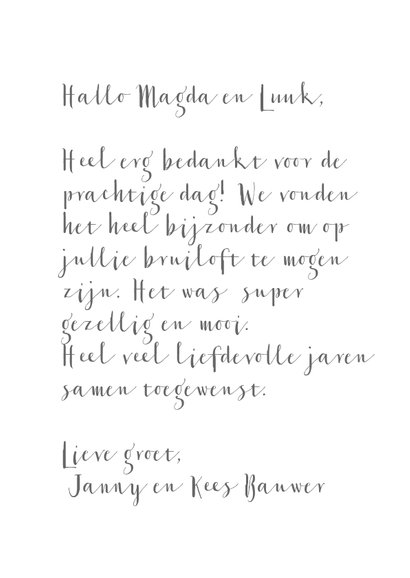 Hallo Magda en Luuk,
Heel erg bedankt voor de
prachtige dag! We vonden
het heel bijzonder om op
jullie bruiloft te mogen
zijn. Het was super
gezellig en mooi.
Heel veel liefdevolle jaren
samen toegewenst.
Lieve groet,
Janny en Kees Bauwer